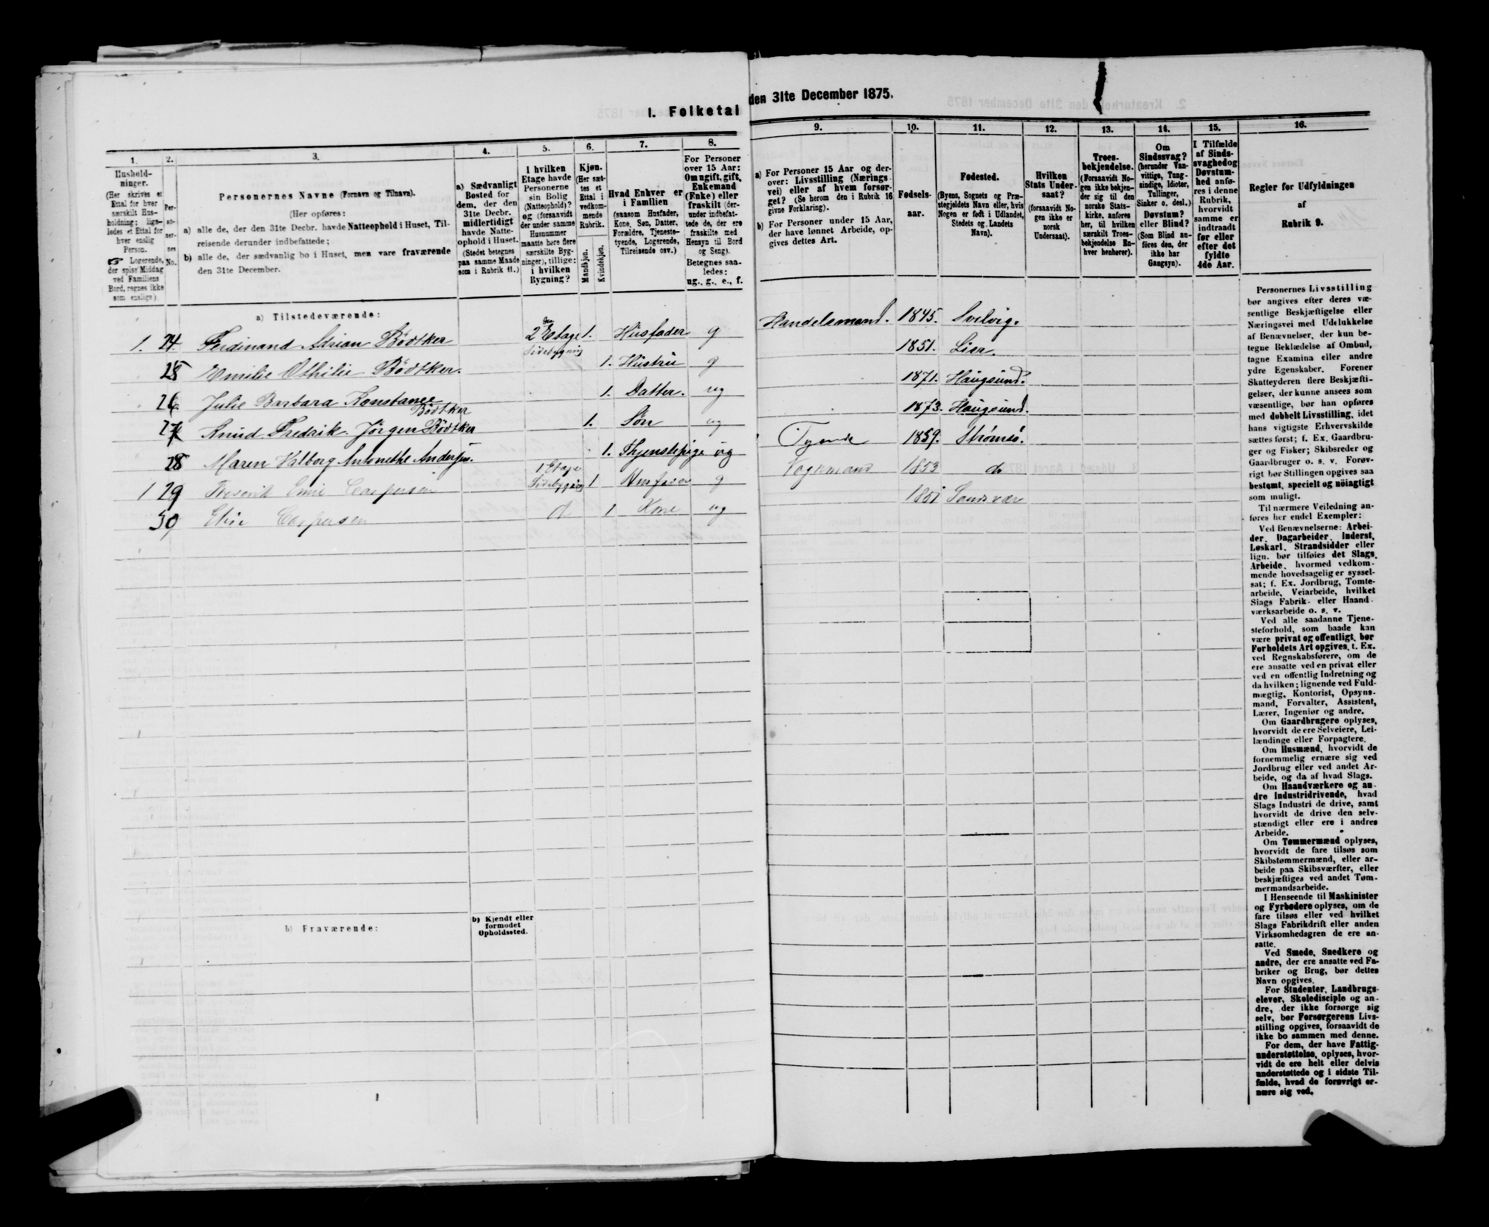 I. Folketal
den 31te December 1875.
1.
2.
3.
4.
5.
6.
7.
8.
Hushold-
ninger.
(Her skrives et
Ettal for hver
særskilt Hus-
holdning; lige-
ledes et Ettal for
hver enslig
Person.
☞ Logerende,
der spise Middag
ved Familiens
Bord, regnes ikke
som enslige).
Per-
so-
ner-
nes
No.
Personernes Navne (Fornavn og Tilnavn).
(Her opføres:
a) alle de, der den 31te Decbr. havde Natteophold i Huset, Til-
reisende derunder indbefattede;
b) alle de, der sædvanlig bo i Huset, men vare fraværende
den 31te December.
a) Sædvanligt
Bosted for
dem, der den
31te Decbr.
midlertidigt
havde Natte-
ophold i Huset.
(Stedet betegnes
paa samme Maade
som i Rubrik 11.)
I hvilken
Etage havde
Personerne
sin Bolig
(Natteophold)?
og (forsaavidt
der under samme
Husnummer
maatte høre flere
særskilte Byg-
ninger), tillige:
i hvilken
Bygning?
Kjøn.
(Her sæt-
tes et
Ettal i
vedkom-
mende
Rubrik.
Mandkjøn.
Kvindekjøn.
Hvad Enhver er
i Familien
(saasom Husfader,
Kone, Søn, Datter,
Forældre, Tjeneste-
tyende, Logerende,
Tilreisende osv.)
For Personer
over 15 Aar:
Om ugift, gift,
Enkemand
(Enke) eller
fraskilt (der-
under indbefat-
tede de, der ere
fraskilte med
Hensyn til Bord
og Seng).
Betegnes saa-
ledes:
ug., g., e., f.
a) Tilstedeværende:
1. 24. Ferdinand Adrian Bödtker 2 Etage 1. Husfader g
Sidebygning
25 Emilie Othilie Bödtker. 1. Hustru g
26 Julie Barbara Konstance 1. Datter. ug
Bödtker
27 Knud Fredrik Jörgen Bödtker 1. Sön ug
28 Maren Valborg Antonethe Andersen. 1. Thjenstepige ug
1 Etage
1 29 Caspersen Sidebygning 1 Husfader g
30 Caspersen do 1. Kone ug
b) Fraværende:
b) Kjendt eller
formodet
Opholdssted.
9.
10.
11.
12.
13.
14.
15.
16.
a) For Personer 15 Aar og der-
over: Livsstilling (Nærings-
vei) eller af hvem forsør-
get? (Se herom den i Rubrik 16
givne Forklaring).
b) For Personer under 15 Aar,
der have lønnet Arbeide, op-
gives dettes Art.
Fødsels-
aar.
Fødested.
(Byens, Sognets og Præ-
stegjeldets Navn eller, hvis
Nogen er født i Udlandet,
Stedets og Landets
Navn).
Hvilken
Stats Under-
saat?
(forsaavidt No-
gen ikke er
norsk
Undersaat).
Troes-
bekjendelse.
(Forsaavidt No-
gen ikke bekjen-
der sig til den
norske Stats-
kirke, anføres
her, til hvilken
særskilt Troes-
bekjendelse En-
hver henhører).
Om
Sindssvag?
(herunder Van-
vittige, Tung-
sindige, Idioter,
Tullinger,
Sinker o. desl.)
Døvstum?
eller Blind?
(Som Blind an-
føres den, der
ikke har
Gangsyn).
I Tilfælde
af Sinds-
svaghed og
Døvstum-
hed anfø-
res i denne
Rubrik,
hvorvidt
samme er
indtraadt
før eller
efter det
fyldte
4de Aar.
Regler for Udfyldningen
af
Rubrik 9.
Handelsmand. 1845. Svelvig.
1851. Lier.
1871. Haugsund.
1873. Haugsund.
Tyende 1859. Strömsö.
Vognmand 1853 do
1851 Sandsvær
Personernes Livsstilling
bør angives efter deres væ-
sentlige Beskjæftigelse eller
Næringsvei med Udelukkelse
af Benævnelser, der kun be-
tegne Beklædelse af Ombud,
tagne Examina eller andre
ydre Egenskaber. Forener
Skatteyderen flere Beskjæfti-
gelser, der kunne ansees som
væsentlige, bør han opføres
med dobbelt Livsstilling, idet
hans vigtigste Erhvervskilde
sættes først; f. Ex. Gaardbru-
ger og Fisker; Skibsreder og
Gaardbruger o. s. v. Forøv-
rigt bør Stillingen opgives saa
bestemt, specielt og nöiagtigt
som muligt.
Til nærmere Veiledning an-
føres her endel Exempler:
Ved Benævnelserne: Arbei-
der, Dagarbeider, Inderst,
Løskarl, Strandsidder eller
lign. bør tilföies det Slags
Arbeide, hvormed vedkom-
mende hovedsagelig er syssel-
sat; f. Ex. Jordbrug, Tomte-
arbeide, Veiarbeide, hvilket
Slags Fabrik- eller Haand-
værksarbeide o. s. v.
Ved alle saadanne Tjene-
steforhold, som baade kan
være privat og offentligt, bør
Forholdets Art opgives, t. Ex.
ved Regnskabsførere, om de
ere ansatte ved en privat eller
ved en offentlig Indretning og
da hvilken; lignende ved Fuld-
mægtig, Kontorist, Opsyns-
mand, Forvalter, Assistent,
Lærer, Ingeniør og andre.
Om Gaardbrugere oplyses,
hvorvidt de ere Selveiere, Lei-
lændinge eller Forpagtere.
Om Husmænd, hvorvidt de
fornemmelig ernære sig ved
Jordbrug eller ved andet Ar-
beide, og da af hvad Slags.
Om Haandværkere og an-
dre Industridrivende, hvad
Slags Industri de drive, samt
hvorvidt de drive den selv-
stændigt eller ere i andres
Arbeide.
Om Tømmermænd oplyses,
hvorvidt de fare tilsøs som
Skibstømmermænd, eller ar-
beide paa Skibsværfter, eller
beskjæftiges ved andet Tøm-
mermandsarbeide.
I Henseende til Maskinister
og Fyrbødere oplyses, om de
fare tilsøs eller ved hvilket
Slags Fabrikdrift eller anden
Virksomhedsgren de ere an-
satte.
Ved Smede, Snedkere og
andre, der ere ansatte ved Fa-
briker og Brug, bør dettes
Navn opgives.
For Studenter, Landbrugs-
elever, Skoledisciple og an-
dre, der ikke forsørge sig
selv, bør Forsørgerens Livs-
stilling opgives, forsaavidt de
ikke bo sammen med denne.
For dem, der have Fattig-
understøttelse, oplyses, hvor-
vidt de ere helt eller delvis
understøttede og i sidste Til-
fælde, hvad de forøvrigt er-
nære sig ved.